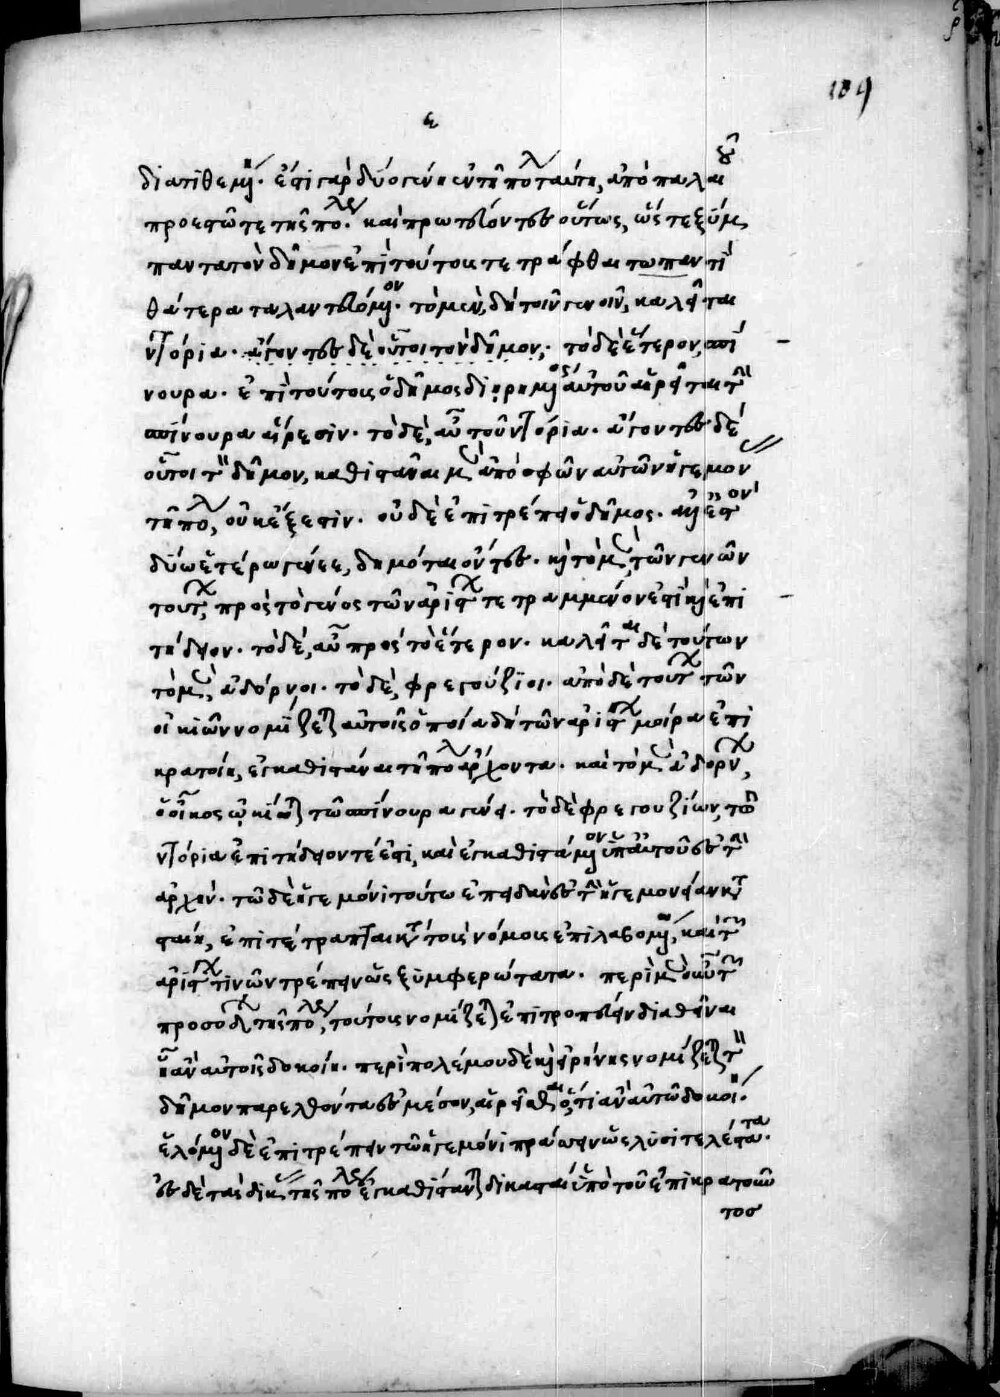 109
ε
διατιθεμένη. ἔστι γὰρ δύο γένη ἐν τῇ πόλει ταύτῃ, ἀπὸ παλαιοῦ
προεστῶτε τῆς πόλεως. καὶ πρωτεύοντες οὕτως, ὥστε ξύμ
παντα τὸν δῆμον ἐπὶ τούτοις τετράφθαι τῷ παντὶ
θάτερα ταλαντευόμενον. τὸ μὲν, δὴ τοῖν γενοῖν, καλεῖται
ντόρια. ἄγοντες δὲ οὗτοι τὸν δῆμον. τὸ δὲ ἕτερον, σπί
νουρα. ἐπὶ τούτοις ὁ δῆμος διῃρημένος αὐτοῦ αἱρεῖται τὴν
σπίνουρα αἵρεσιν. τὸ δὲ, αὖ τοῦ ντόρια. ἄγοντες δέ
οὗτοι τὸν δῆμον, καθιστᾶναι μὲν ἀπὸ σφῶν αὐτῶν ἡγεμόνα
τῇ πόλει, οὐκ ἔξεστιν. οὐδὲ ἐπιτρέπει ὁ δῆμος. καὶ ἐστὸν
δύω ἑτέρω γένεε, δημόται ὄντες. καὶ τὸ μὲν, τῶν γενῶν
τούτων, πρὸς τὸ γένος τῶν ἀρίστων τετραμμένον ἐστὶ καὶ ἐπι
τήδειον. τὸ δέ, αὖ πρὸς τὸ ἕτερον. καλεῖται δὲ τούτων
τὸ μὲν, ἀδόρνοι. τὸ δὲ, φρεγούζιοι. ἀπὸ δὲ τούτων τῶν
οἰκιῶν νομίζεται αὐτοῖς ὁποία δὴ τῶν ἀρίστων μοίρα ἐπι
κρατοίη, ἐγκαθιστάναι τῇ πόλει ἄρχοντα. καὶ τὸ μὲν ἀδόρνων,
ὁ οἶκος ᾠκείωται τῷ σπίνουρα γένει. τὸ δὲ φρεγουζίων, τῷ
ντόρια ἐπιτήδειόν τέ ἐστι, καὶ ἐγκαθιστάμενον ὑπ' αὐτοῦ ἐς τὴν
ἀρχήν. τῷ δὲ ἡγεμόνι τούτῳ ἐπειδὰν ἐς τὴν ἡγεμονείαν κατα
σταίη, ἐπιτέτραπται κατὰ τοὺς νόμους ἐπιλαβομένῳ, καὶ τῶν
ἀρίστων τινῶν τρέπειν ὡς ξυμφερώτατα. περὶ μὲν οὖν τῶν
προσόδων τῆς πόλεως, τούτοις νομίζεται ἐπιτροπεύειν διαθεῖναι
ᾗ ἂν αὐτοῖς δοκοίη. περὶ πολέμου δὲ καὶ εἰρήνης νομίζεται τὸν
δῆμον παρελθόντα ἐς μέσον, αἱρεῖσθαι ὅ,τι ἂν αὐτῷ δοκοίη.
ἑλόμενον δὲ ἐπιτρέπειν τῷ ἡγεμόνι πράσσειν ᾗ λυσιτελέστατα.
ἐς δὲ τὰς δίκας τῆς πόλεως ἐγκαθίστανται δικασταὶ ὑπὸ τοῦ ἐπικρατοῦν
τος